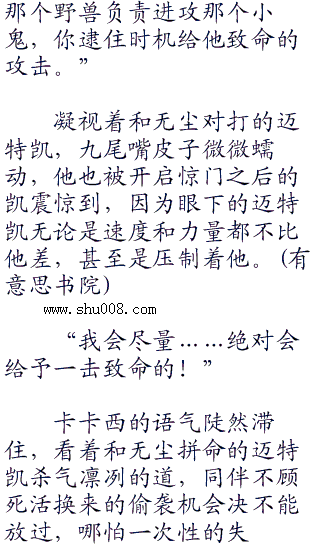 那个野兽负责进攻那个小
鬼，你逮住时机给他致命的
攻击。”
凝视着和无尘对打的迈
特凯，九尾嘴皮子微微蠕
动，他也被开启惊门之后的
凯震惊到，因为眼下的迈特
凯无论是速度和力量都不比
他差，甚至是压制着他。(有
意思书院)
www.shu008.com
“我会尽量……绝对会
给予一击致命的！”
卡卡西的语气陡然滞
住，看着和无尘拼命的迈特
凯杀气凛冽的道，同伴不顾
死活换来的偷袭机会决不能
放过，哪怕一次性的失